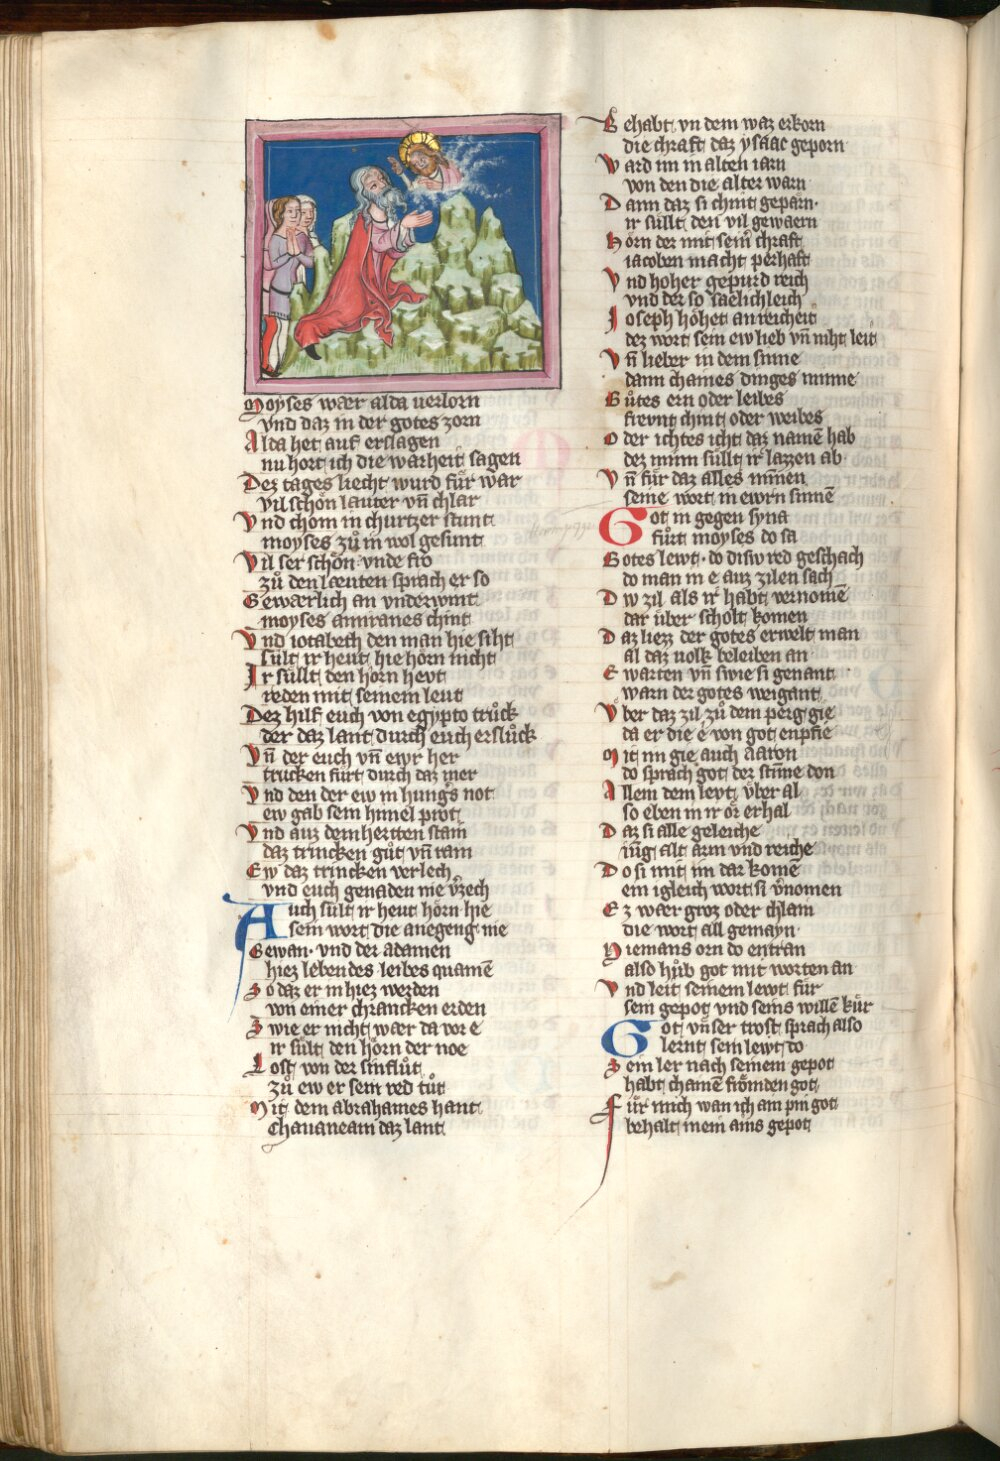 Moyses wær alda uerlorn
vnd daz in der gotes zorn
Alda het auf erslagen
nu hort ich die warheit sagen
Dez tages liecht wurd fuͤr war
vil schoͤn lauter vn̄ chlar
Vnd chom in churtzer stunt
moyses zuͦ in wol gesunt
Vil ser schoͤn vnde fro
zuͦ den læuten sprach er so
Gewærlich an vnderwint
moyses amranes chint
Vnd iotabech den man hie siht
sult ir heut hie hoͤrn nicht
Ir suͤllt den hoͤrn hevt
reden mit seinem leut
Dez hilf euch von egypto truͦck
der daz lant durch euch ersluͦck
Vn̄ der euch vn̄ ewr her
trucken fuͤrt durch daz mer
Vnd den der ew in hungˢ not
ew gab sein himel prot
Vnd auz dem hertten stain
daz trincken guͦt vn̄ rain
Ew daz trincken verlech
vnd euch genaden nie v̓zech
Auch suͤlt ir heut hoͤrn hie
sein wort die anegeng nie
Gewan · vnd der adamen
hiez lebendes leibes quamē
So daz er in hiez werden
von einer chrancken erden
Swie er nicht wær da vor e
ir suͤlt den hoͤrn der noe
Lost von der sinfluͦt
zuͦ ew er sein red tuͦt
Mit dem abrahames hant
Chananeam daz lant
Behabt vn dem waz erkorn
die chraft daz ysaac geporn
Ward im in alten iarn
von den die alter warn
Dann daz si chint gepærn ·
ir suͤllt den vil gewaern
Hoͤrn der mit seinˢ chraft
iacoben macht perhaft
Vnd hoher gepurd reich
vnd der so sælichleich
Joseph hoͤhet an reicheit
dez wort sein ew lieb vn̄ niht leit
Vn̄ lieber in dem sinne
dann chaines dinges minne
Guͦtes ern oder leibes
frevnt chint oder weibes
Oder ichtes icht daz namē hab
dez minn suͤllt ir lazzen ab
Vn̄ fuͤr daz alles minnen
seine wort in ewrn sinnē
Got in gegen syna
fuͤrt moyses do sa
Gotes lewt · do disw red geschach
do man in e auz zilen sach
Dw zil als ir habt vernomē
dar uͤber scholt komen
Daz liezz der gotes erwelt man
al daz uolk beleiben an
Ewarten vn̄ swie si genant
warn der gotes weigant
Vͤber daz zil zuͦ dem perg gie
da er die e von got enpfie
Mit im gie auch Aaron
do sprach got der stīme don
Allem dem levt vͤber al
so eben in ir or erhal
Daz si alle geleiche
iūg alt arm vnd reiche
Do si mit im dar komē
ein igleich wort si v̓nomen
Ez wær groz oder chlain
die wort all gemayn
Niemans orn do entran
also huͦb got mit worten an
Vnd leit seinem lewt fuͤr
sein gepot vnd seins willē kuͤr
Got vnser trost sprach also
lernt sein lewt do
Sein ler nach seinem gepot
habt chainē froͤmden got
Fuͤr mich wan ich ain pin got
behalt mein ains gepot